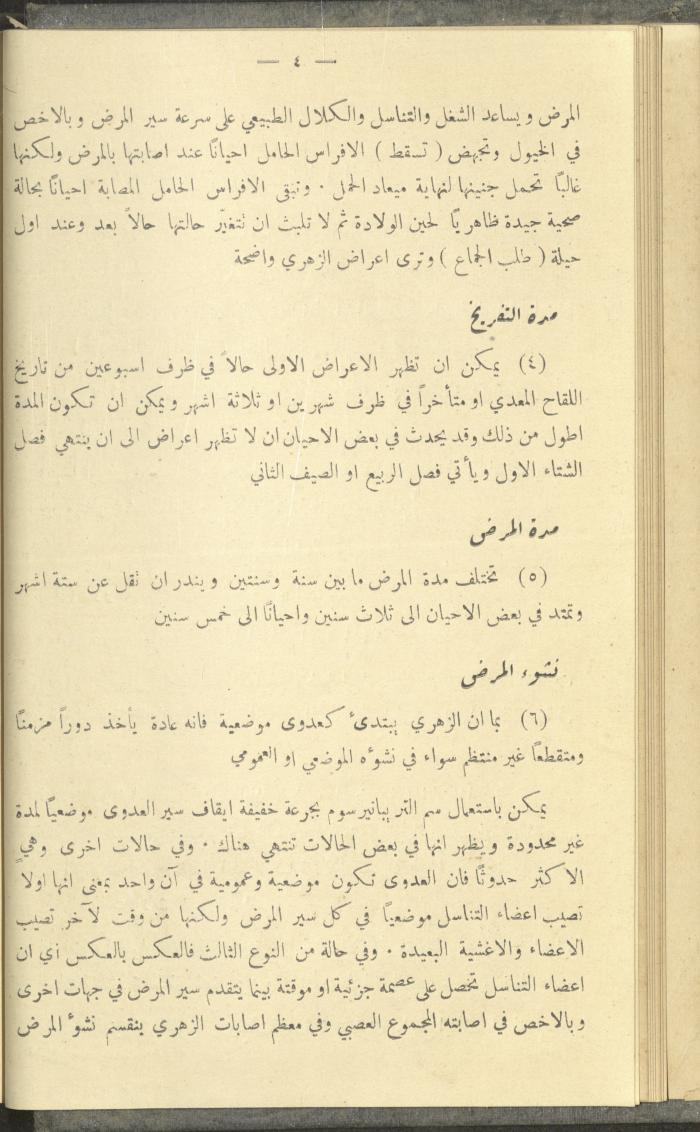 — ٤ —
المرض ويساعد الشغل والتناسل والكلال الطبيعي على سرعة سير المرض وبالاخص
في الخيول وتجهض ( تسقط ) الافراس الحامل احيانًا عند اصابتها بالمرض ولكنها
غالبًا تحمل جنينها لنهاية ميعاد الحمل ٠ وتبقى الافراس الحامل المصابة احيانًا بحالة
صحية جيدة ظاهريًا لحين الولادة ثم لا تلبث ان تتغيّر حالتها حالاً بعد وعند اول
حيلة ( طلب الجماع ) وترى اعراض الزهري واضحة
مدة التفريخ
(٤) يمكن ان تظهر الاعراض الاولى حالاً في ظرف اسبوعين من تاريخ
اللقاح المعدي او متأخراً في ظرف شهرين او ثلاثة اشهر ويمكن ان تكون المدة
اطول من ذلك وقد يحدث في بعض الاحيان ان لا تظهر اعراض الى ان ينتهي فصل
الشتاء الاول ويأتي فصل الربيع او الصيف الثاني
مدة المرض
(٥) تختلف مدة المرض ما بين سنة وسنتين ويندر ان تقل عن ستة اشهر
وتمتد في بعض الاحيان الى ثلاث سنين واحيانًا الى خمس سنين
نشوء المرض
(٦) بما ان الزهري يبتدئ كعدوى موضعية فانه عادة يأخذ دوراً مزمنًا
ومتقطعًا غير منتظم سواء في نشوءه الموضعي او العمومي
يمكن باستعمال سم التريبانيرسوم بجرعة خفيفة ايقاف سير العدوى موضعيًا لمدة
غير محدودة ويظهر انها في بعض الحالات تنتهي هناك ٠ وفي حالات اخرى وهي
الاكثر حدوثًا فان العدوى تكون موضعية وعمومية في آن واحد بمعنى انها اولا
تصيب اعضاء التناسل موضعيًا في كل سير المرض ولكنها من وقت لآخر تصيب
الاعضاء والاغشية البعيدة ٠ وفي حالة من النوع الثالث فالعكس بالعكس اي ان
اعضاء التناسل تحصل على عصمة جزئية او موقتة بينما يتقدم سير المرض في جهات اخرى
وبالاخص في اصابته المجموع العصبي وفي معظم اصابات الزهري ينقسم نشوء المرض